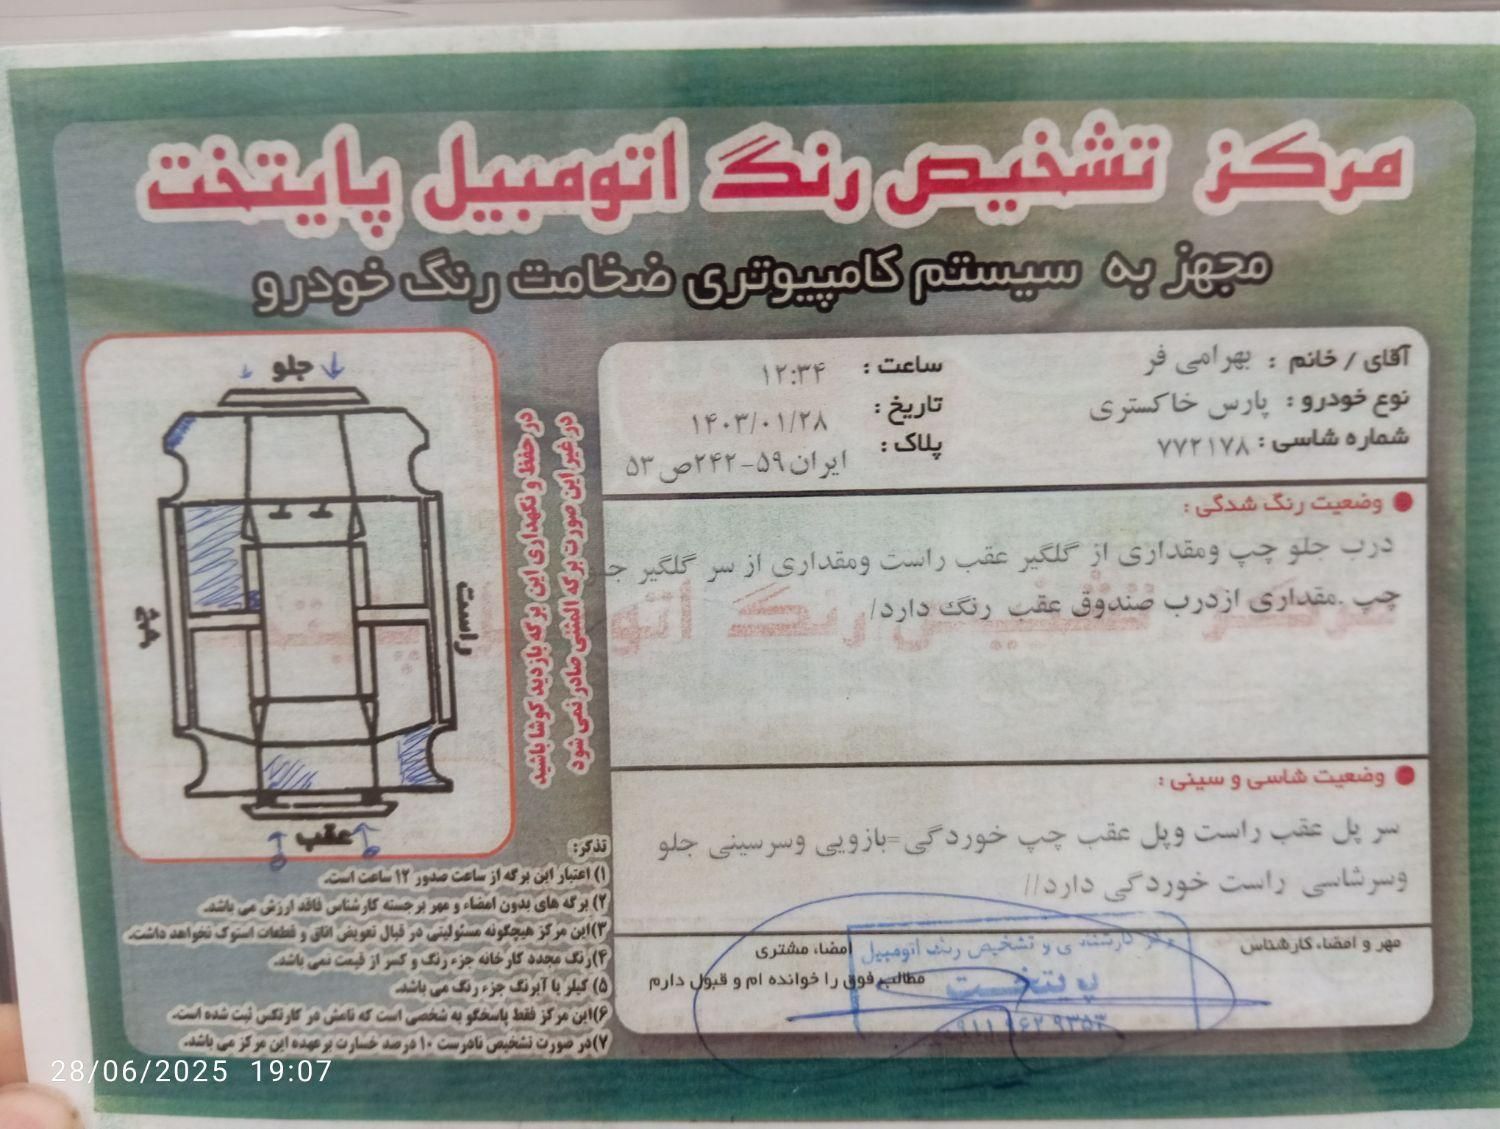 مرکز تشخیص رنگ اتومبیل پایتخت
مجهز به سیستم کامپیوتری ضخامت رنگ خودرو
آقای / خانم : بهرامی فر
ساعت : ۱۲:۳۴
نوع خودرو : پارس خاکستری
تاریخ : ۱۴۰۳/۰۱/۲۸
شماره شاسی : ۷۷۲۱۷۸
پلاک : ایران ۵۹-۲۴۲ص ۵۳
وضعیت رنگ شدگی :
درب جلو چپ ومقداری از گلگیر عقب راست ومقداری از سر گلگیر جلو
چپ .مقداری ازدرب صندوق عقب رنگ دارد/
وضعیت شاسی و سینی :
سر پل عقب راست وپل عقب چپ خوردگی=بازویی وسرسینی جلو
وسرشاسی راست خوردگی دارد//
مهر و امضاء کارشناس
امضاء مشتری
مطالب فوق را خوانده ام و قبول دارم
مرکز کارشناسی و تشخیص رنگ اتومبیل
پایتخت
در حفظ و نگهداری این برگه بازدید کوشا باشید
در غیر این صورت برگه المثنی صادر نمی شود
جلو
چپ
راست
عقب
تذکر:
۱) اعتبار این برگه از ساعت صدور ۱۲ ساعت است.
۲) برگه های بدون امضاء و مهر برجسته کارشناس فاقد ارزش می باشد.
۳)این مرکز هیچگونه مسئولیتی در قبال تعویض اتاق و قطعات استوک نخواهد داشت.
۴)رنگ مجدد کارخانه جزء رنگ و کسر از قیمت نمی باشد.
۵) گیلر یا آبرنگ جزء رنگ می باشد.
۶)این مرکز فقط پاسخگو به شخصی است که نامش در کارتکس ثبت شده است.
۷)در صورت تشخیص نادرست ۱۰ درصد خسارت برعهده این مرکز می باشد.
28/06/2025 19:07